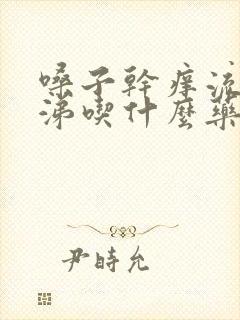 嗓子幹痒流
涕喫什麼藥
尹時允